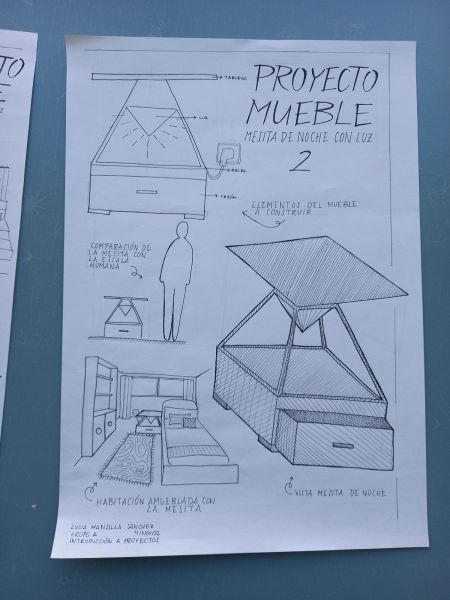 PROYECTO
MUEBLE
MESITA DE NOCHE CON LUZ
2
TABLERO
LUZ
BALDA
CAJÓN
ELEMENTOS DEL MUEBLE
A CONSTRUIR
COMPARACIÓN DE
LA MESITA CON
LA ESCALA
HUMANA
HABITACIÓN AMUEBLADA CON
LA MESITA
VISTA MESITA DE NOCHE
LUCIA MANSILLA SÁNCHEZ
GRUPO A
INTRODUCCIÓN A PROYECTOS
TO